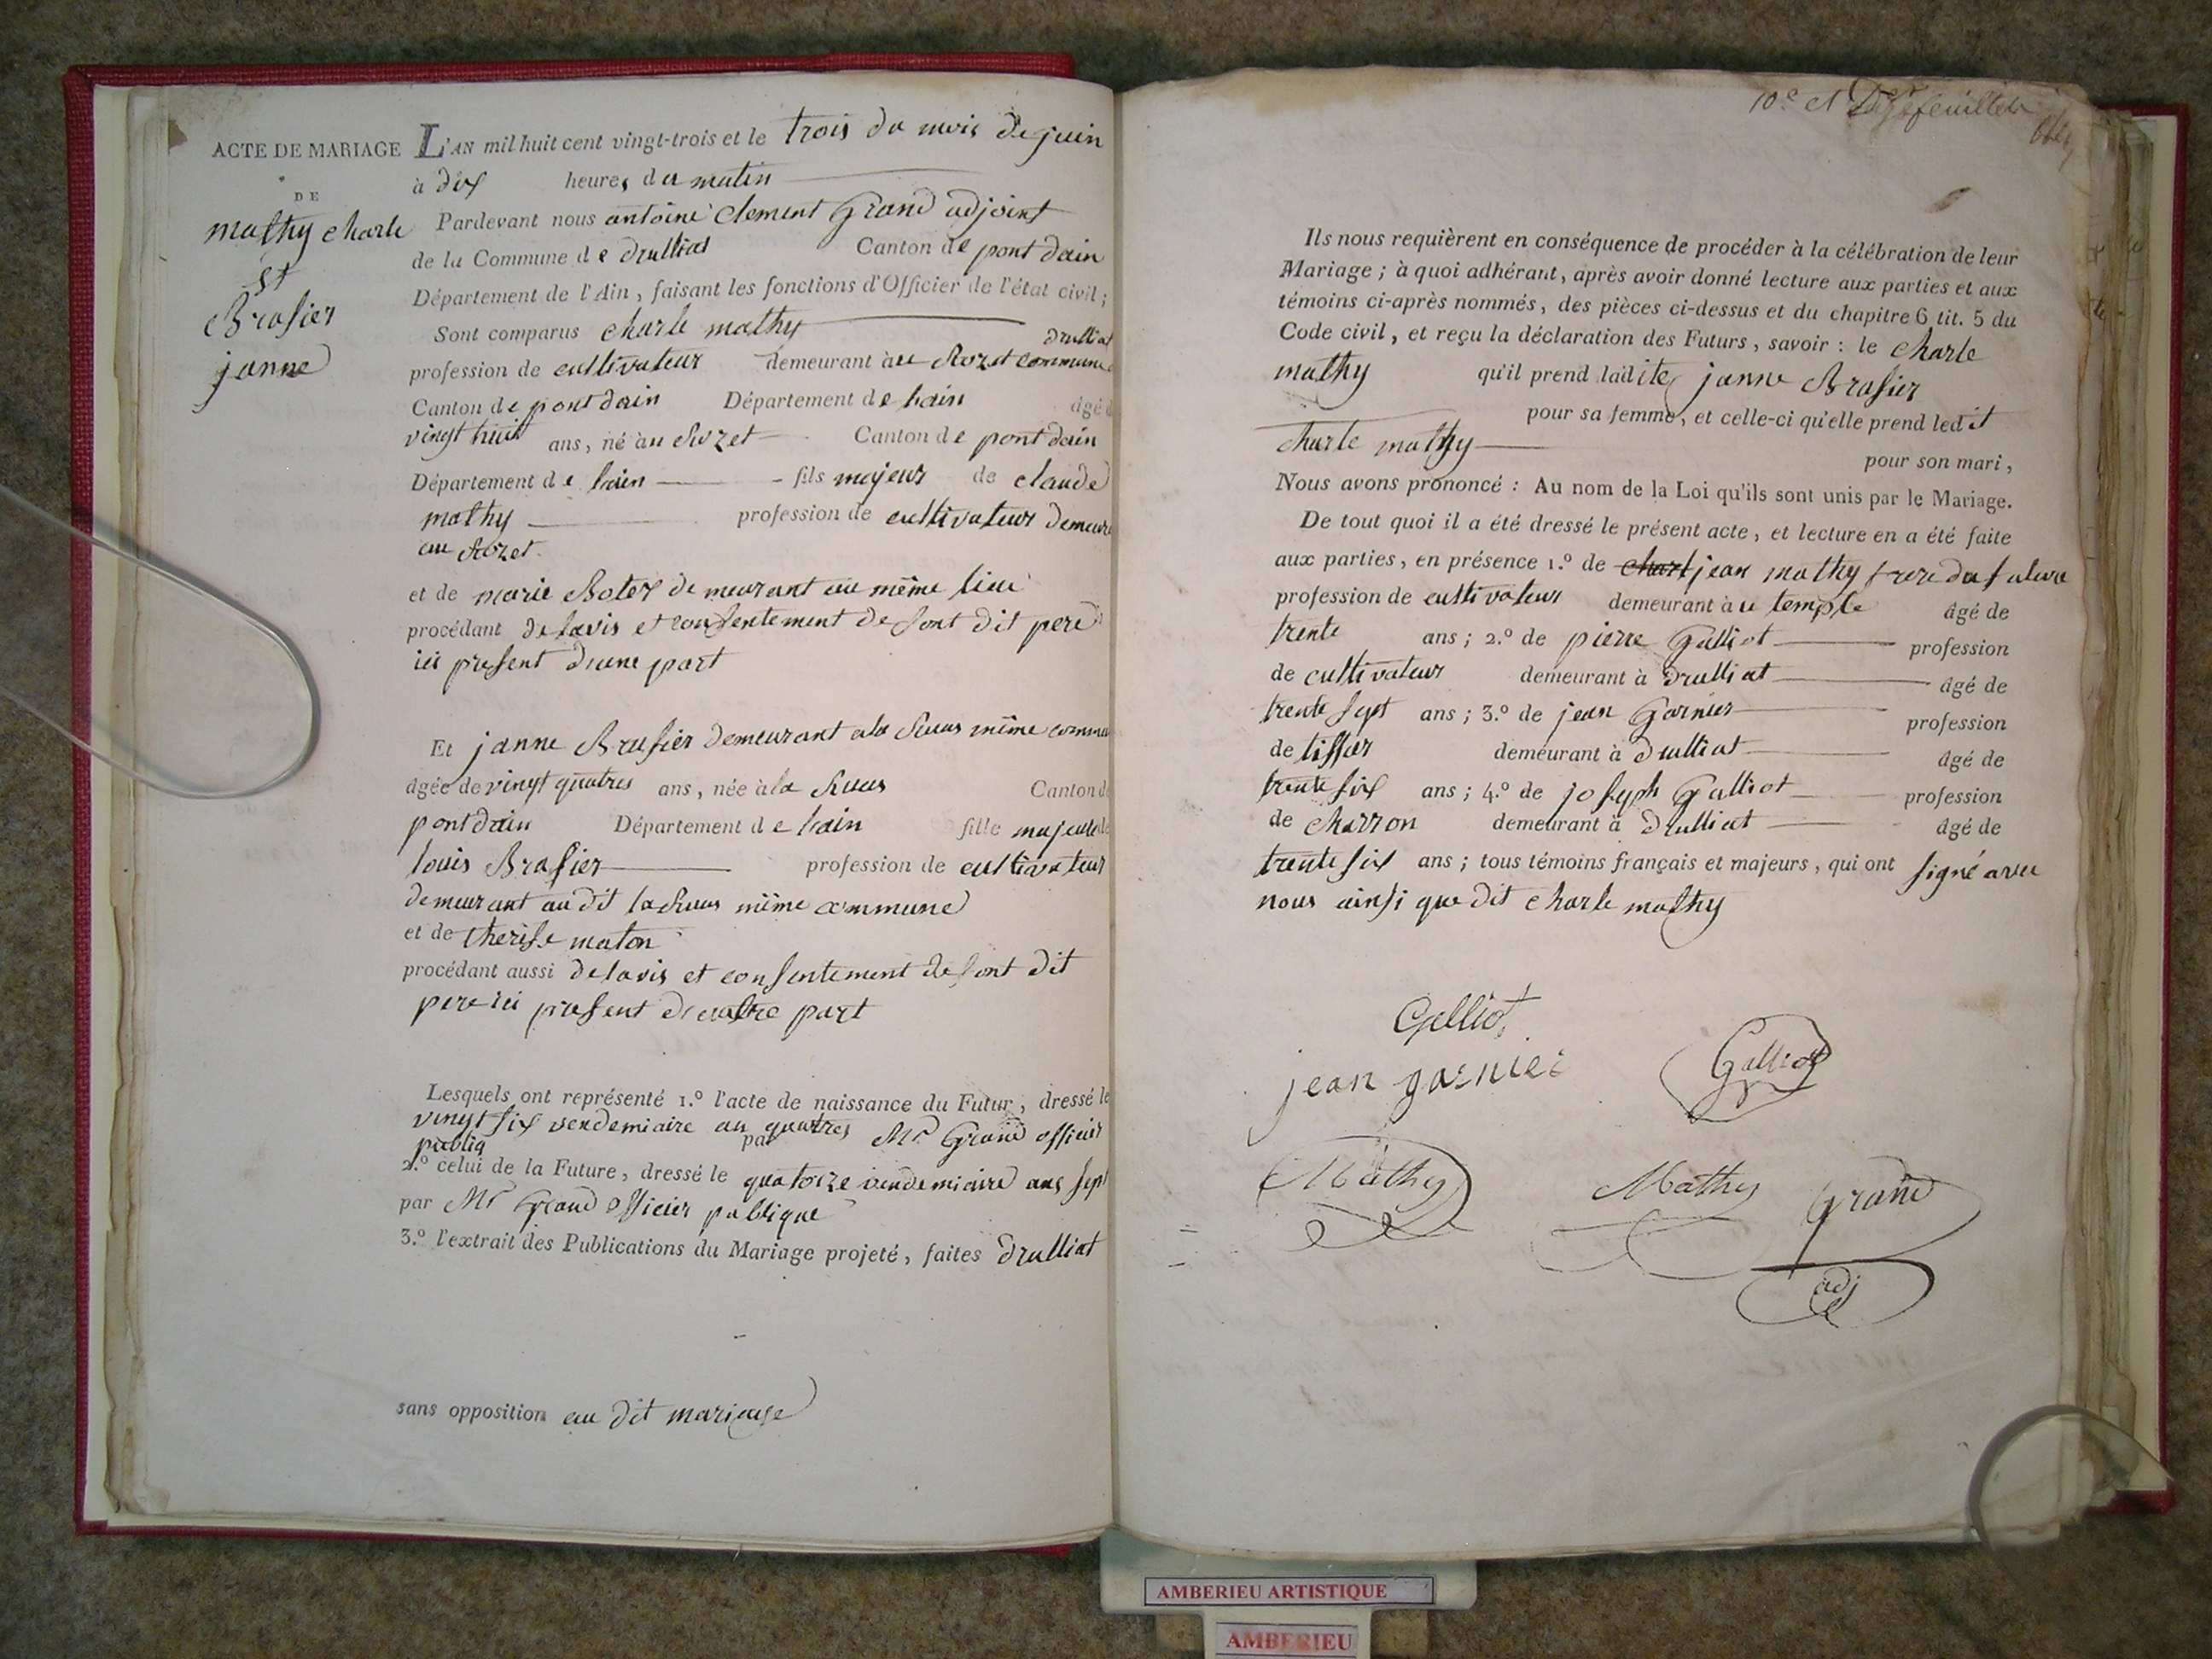 ACTE DE MARIAGE
DE
mathy charle
et
Brasier
janne
L'AN mil huit cent vingt-trois et le trois du mois de juin
à dix heures du matin
Pardevant nous antoine clement Grand adjoint
de la Commune de druillat Canton de pont dain
Département de l'Ain, faisant les fonctions d'Officier de l'état civil;
Sont comparus charle mathy
druillat
profession de cultivateur demeurant àu Rozet commune
Canton de pont dain Département de lain âgé d
vingt huit ans, né àu Rozet Canton de pont dain
Département de lain fils majeur de claude
mathy profession de cultivateur demeure
au Rozet
et de marie demeurant au même lieu
procédant de lavis et consentement de sont dit pere
ici present dune part
Et janne Brasier demeurant a la même commu
âgée de vingt quatres ans, née à la Canton de
pont dain Département de lain fille majeure de
louis Brasier profession de cultivateur
demeurant au dit même commune
et de therise maton
procédant aussi de lavis et consentement de sont dit
pere ici present dautre part
Lesquels ont représenté 1.º l'acte de naissance du Futur, dressé le
vingt six vendemiaire an quatres par Mr Grand officier
publiq
2.º celui de la Future, dressé le quatorze vendemiaire ans sept
par Mr Grand officier publique
3.º l'extrait des Publications du Mariage projeté, faites druillat
sans opposition au dit mariage
10.e et feuillet
Ils nous requièrent en conséquence de procéder à la célébration de leur
Mariage; à quoi adhérant, après avoir donné lecture aux parties et aux
témoins ci-après nommés, des pièces ci-dessus et du chapitre 6 tit. 5 du
Code civil, et reçu la déclaration des Futurs, savoir: le charle
mathy qu'il prend ladite janne Brasier
pour sa femme, et celle-ci qu'elle prend ledit
charle mathy
pour son mari,
Nous avons prononcé: Au nom de la Loi qu'ils sont unis par le Mariage.
De tout quoi il a été dressé le présent acte, et lecture en a été faite
aux parties, en présence 1.º de charl jean mathy frere du future
profession de cultivateur demeurant àu temple âgé de
trente ans; 2.º de pierre Galliot profession
de cultivateur demeurant à druillat âgé de
trente sept ans; 3.º de jean Garnier profession
de tissier demeurant à druillat âgé de
trente six ans; 4.º de joseph Galliot profession
de charron demeurant à druillat âgé de
trente six ans; tous témoins français et majeurs, qui ont signé avec
nous ainsi que dit charle mathy
Galliot
jean garnier
Galliot
Mathy
Mathy
Grand
adj
AMBERIEU ARTISTIQUE
AMBERIEU